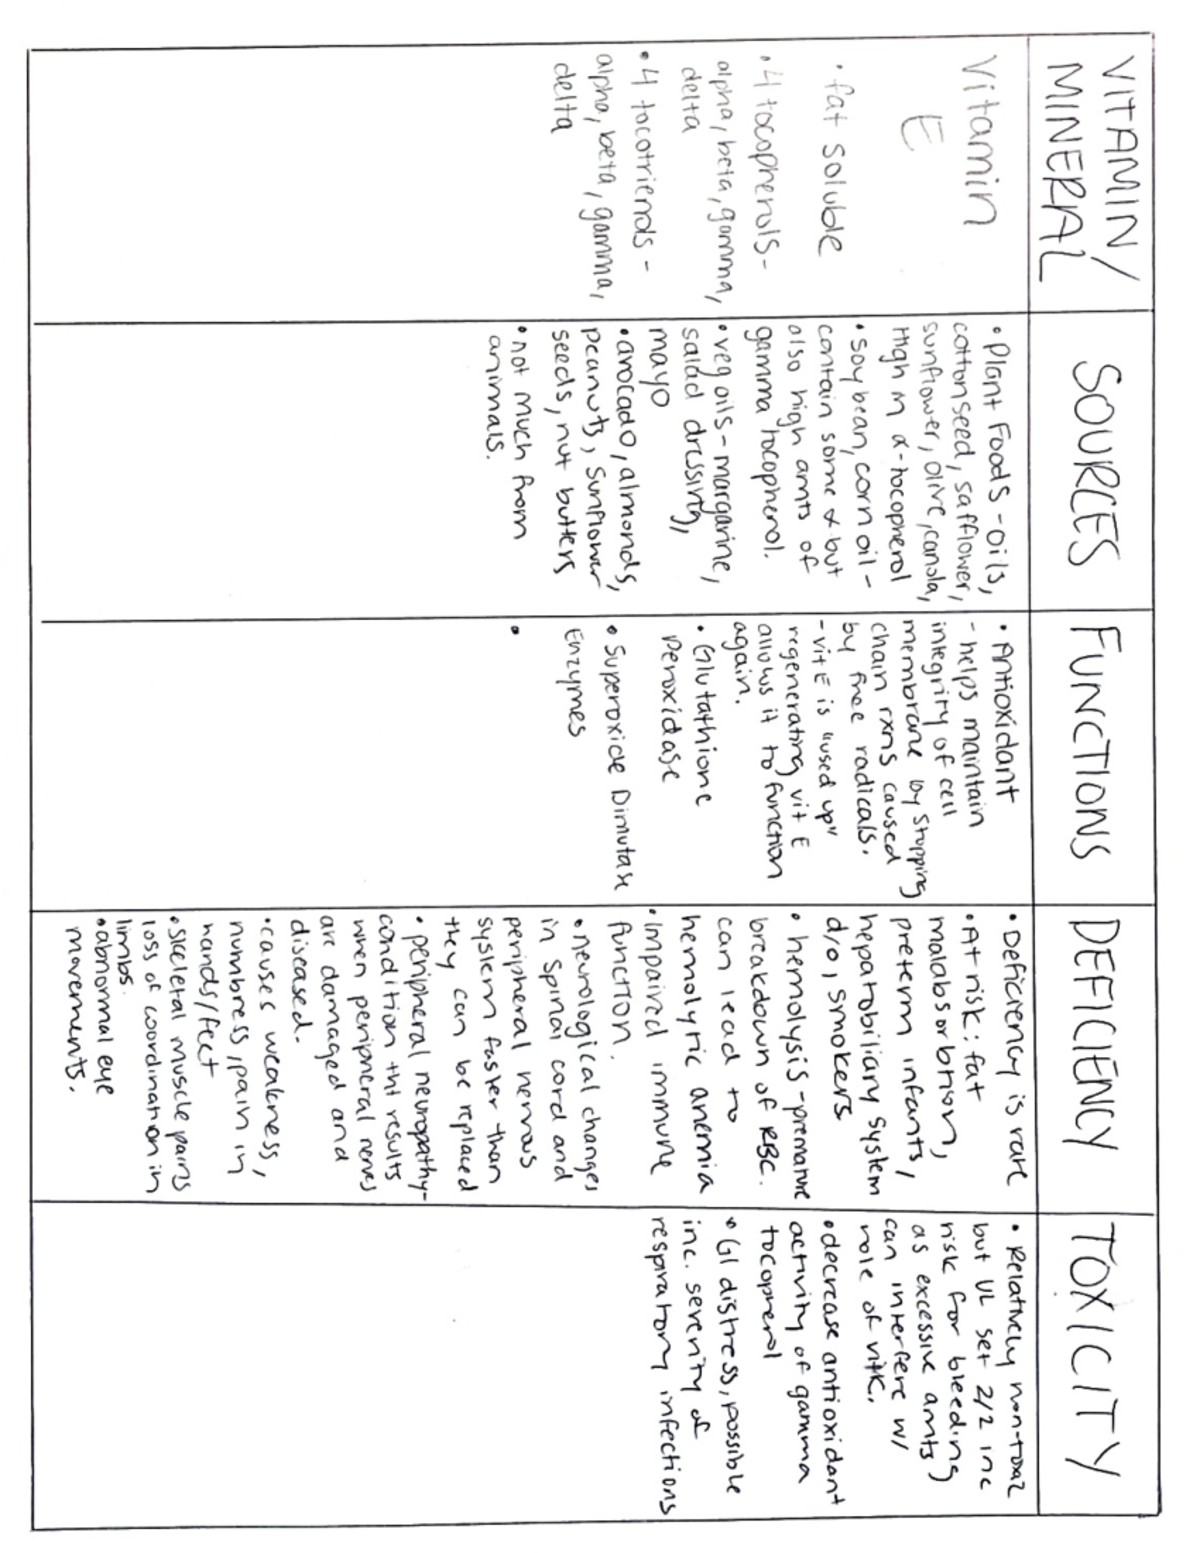 VITAMIN/
MINERAL
Vitamin
E
• fat soluble
• 4 tocopherols-
alpha, beta, gamma,
delta
• 4 tocotrienols -
alpha, beta, gamma,
delta
SOURCES
• Plant Foods - oils,
cottonseed, safflower,
sunflower, olive, canola,
High in α-tocopherol
• soybean, corn oil -
contain some α but
also high amts of
gamma tocopherol.
• veg oils - margarine,
salad dressing,
mayo
• avocado, almonds,
peanuts, sunflower
seeds, nut butters
• not much from
animals.
FUNCTIONS
• Antioxidant
- helps maintain
integrity of cell
membrane by stopping
chain rxns caused
by free radicals.
- vit E is "used up"
regenerating vit E
allows it to function
again.
• Glutathione
Peroxidase
• Superoxide Dimutase
Enzymes
•
DEFICIENCY
• Deficiency is rare
• At risk: fat
malabsorbtion,
preterm infants,
hepatobiliary system
d/o, smokers
• hemolysis - premature
breakdown of RBC.
can lead to
hemolytic anemia
• Impaired immune
function.
• neurological changes
in spinal cord and
peripheral nervous
system faster than
they can be replaced
• peripheral neuropathy-
condition tht results
when peripheral nerves
are damaged and
diseased.
• causes weakness,
numbness, pain in
hands/feet
• skeletal muscle pains
loss of coordination in
limbs.
• abnormal eye
movements.
TOXICITY
• Relatively non-toxic
but UL set 2/2 inc
risk for bleeding
as excessive amts
can interfere w/
role of vit K.
• decrease antioxidant
activity of gamma
tocopherol
• GI distress, possible
inc. severity of
respiratory infections